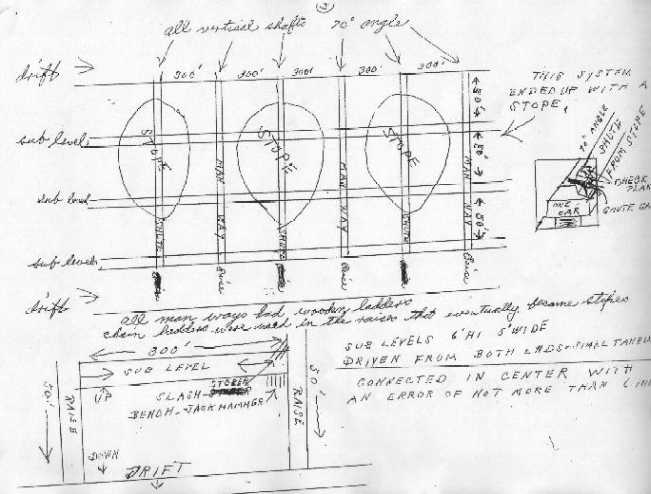 all vertical shafts 70° angle
drift 300' 300' 300' 300' 300'
THIS SYSTEM
ENDED UP WITH A
STOPE,
sub level,
sub level
sub level,
drift
50'
50'
50'
STOPE
STOPE
STOPE
MAN WAY
MAN WAY
MAN WAY
Raise
Raise
Raise
70° ANGLE
SHUTE
FROM STOPE
ORE
CAR
all man ways had wooden ladders
chain ladders were used in the raises that eventually became stopes
300'
SUB LEVEL
50'
RAISE
UP
SLASH
BENCH - JACK HAMMER
DOWN
DRIFT
RAISE
50'
SUB LEVELS 6' HI 5' WIDE
DRIVEN FROM BOTH ENDS - SIMULTANEOU
CONNECTED IN CENTER WITH
AN ERROR OF NOT MORE THAN